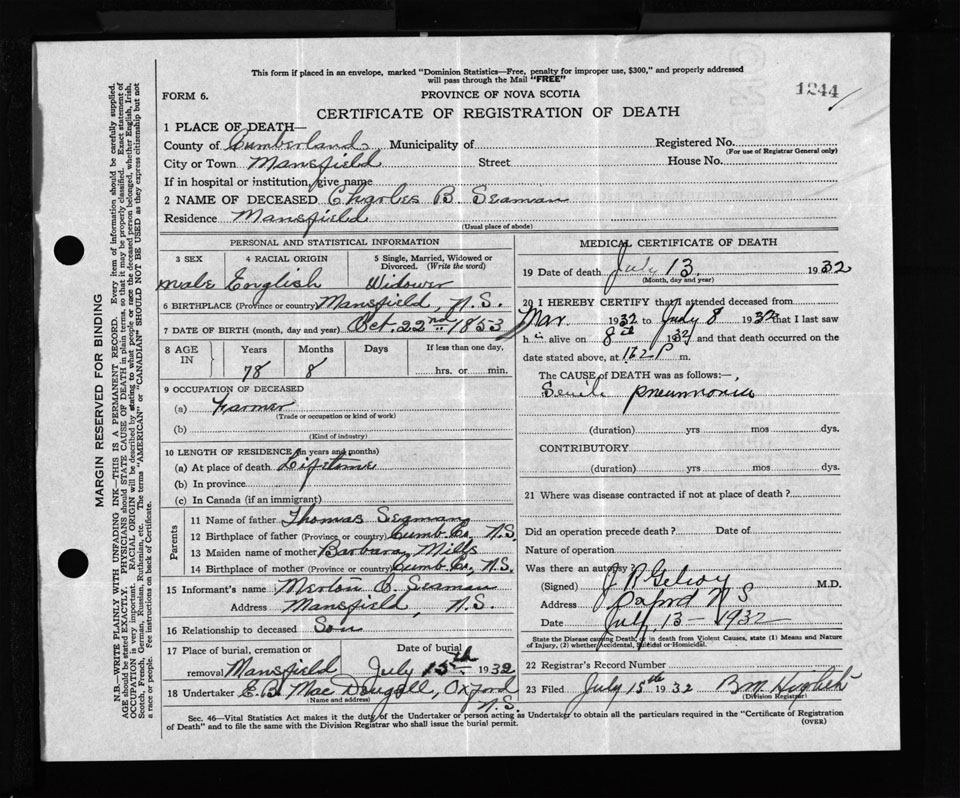 This form if placed in an envelope, marked "Dominion Statistics—Free, penalty for improper use, $300," and properly addressed
will pass through the Mail "FREE"
FORM 6.
PROVINCE OF NOVA SCOTIA
1244
CERTIFICATE OF REGISTRATION OF DEATH
1 PLACE OF DEATH—
County of Cumberland Municipality of Registered No.
(For use of Registrar General only)
City or Town Mansfield Street House No.
If in hospital or institution, give name
2 NAME OF DECEASED Charles B. Seaman
Residence Mansfield
(Usual place of abode)
PERSONAL AND STATISTICAL INFORMATION
3 SEX 4 RACIAL ORIGIN 5 Single, Married, Widowed or Divorced. (Write the word)
male English Widower
6 BIRTHPLACE (Province or country) Mansfield, N.S.
7 DATE OF BIRTH (month, day and year) Oct. 22nd 1853
8 AGE IN Years Months Days If less than one day,
78 8 hrs. or min.
9 OCCUPATION OF DECEASED
(a) Farmer
(Trade or occupation or kind of work)
(b)
(Kind of industry)
10 LENGTH OF RESIDENCE (in years and months)
(a) At place of death Lifetime
(b) In province
(c) In Canada (if an immigrant)
Parents
11 Name of father Thomas Seaman
12 Birthplace of father (Province or country) Cumb. Co., N.S.
13 Maiden name of mother Barbara Mills
14 Birthplace of mother (Province or country) Cumb. Co., N.S.
15 Informant's name Merton C. Seaman
Address Mansfield, N.S.
16 Relationship to deceased Son
17 Place of burial, cremation or Date of burial
removal Mansfield July 15th 1932
18 Undertaker E.B. MacDougall, Oxford N.S.
(Name and address)
MEDICAL CERTIFICATE OF DEATH
19 Date of death July 13. 1932
(Month, day and year)
20 I HEREBY CERTIFY that I attended deceased from
Mar. 1932 to July 8 1932 that I last saw
h is alive on 8th 1932 and that death occurred on the
date stated above, at P m.
The CAUSE of DEATH was as follows:—
Senile pneumonia
(duration) yrs mos dys.
CONTRIBUTORY
(duration) yrs mos dys.
21 Where was disease contracted if not at place of death?
Did an operation precede death? Date of
Nature of operation
Was there an autopsy?
(Signed) M.D.
Address Oxford N S
Date July 13 - 1932
State the Disease causing Death, or in death from Violent Causes, state (1) Means and Nature
of Injury, (2) whether Accidental, Suicidal or Homicidal.
22 Registrar's Record Number
23 Filed July 15th 1932 B M
(Division Registrar)
Sec. 46—Vital Statistics Act makes it the duty of the Undertaker or person acting as Undertaker to obtain all the particulars required in the "Certificate of Registration
of Death" and to file the same with the Division Registrar who shall issue the burial permit.
(OVER)
MARGIN RESERVED FOR BINDING
N.B.—WRITE PLAINLY WITH UNFADING INK—THIS IS A PERMANENT RECORD. Every item of information should be carefully supplied.
AGE should be stated EXACTLY. PHYSICIANS should STATE CAUSE OF DEATH in plain terms, so that it may be properly classified. Exact statement of
OCCUPATION is very important. RACIAL ORIGIN will be described by stating to what people or race the deceased person belonged, whether English, Irish,
Scotch, French, German, Russian, Ruthenian, etc. The terms "AMERICAN" or "CANADIAN" SHOULD NOT BE USED as they express citizenship but not
a race or people. See instructions on back of Certificate.